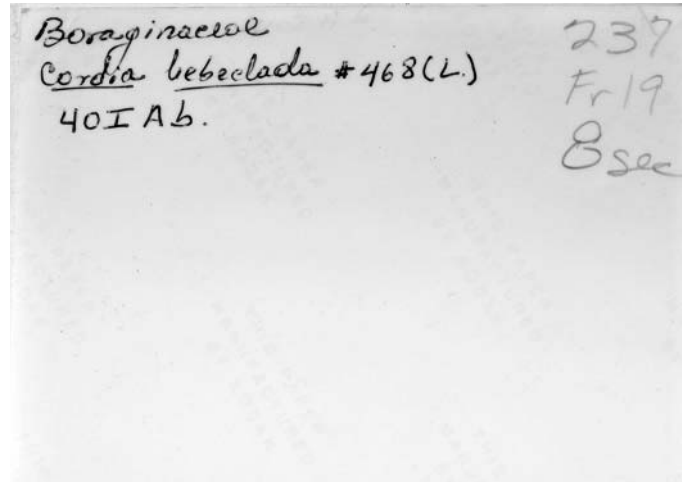 Boraginaceae
Cordia bebeclada #468(L.)
40I Ab.
237
Fr19
8 sec